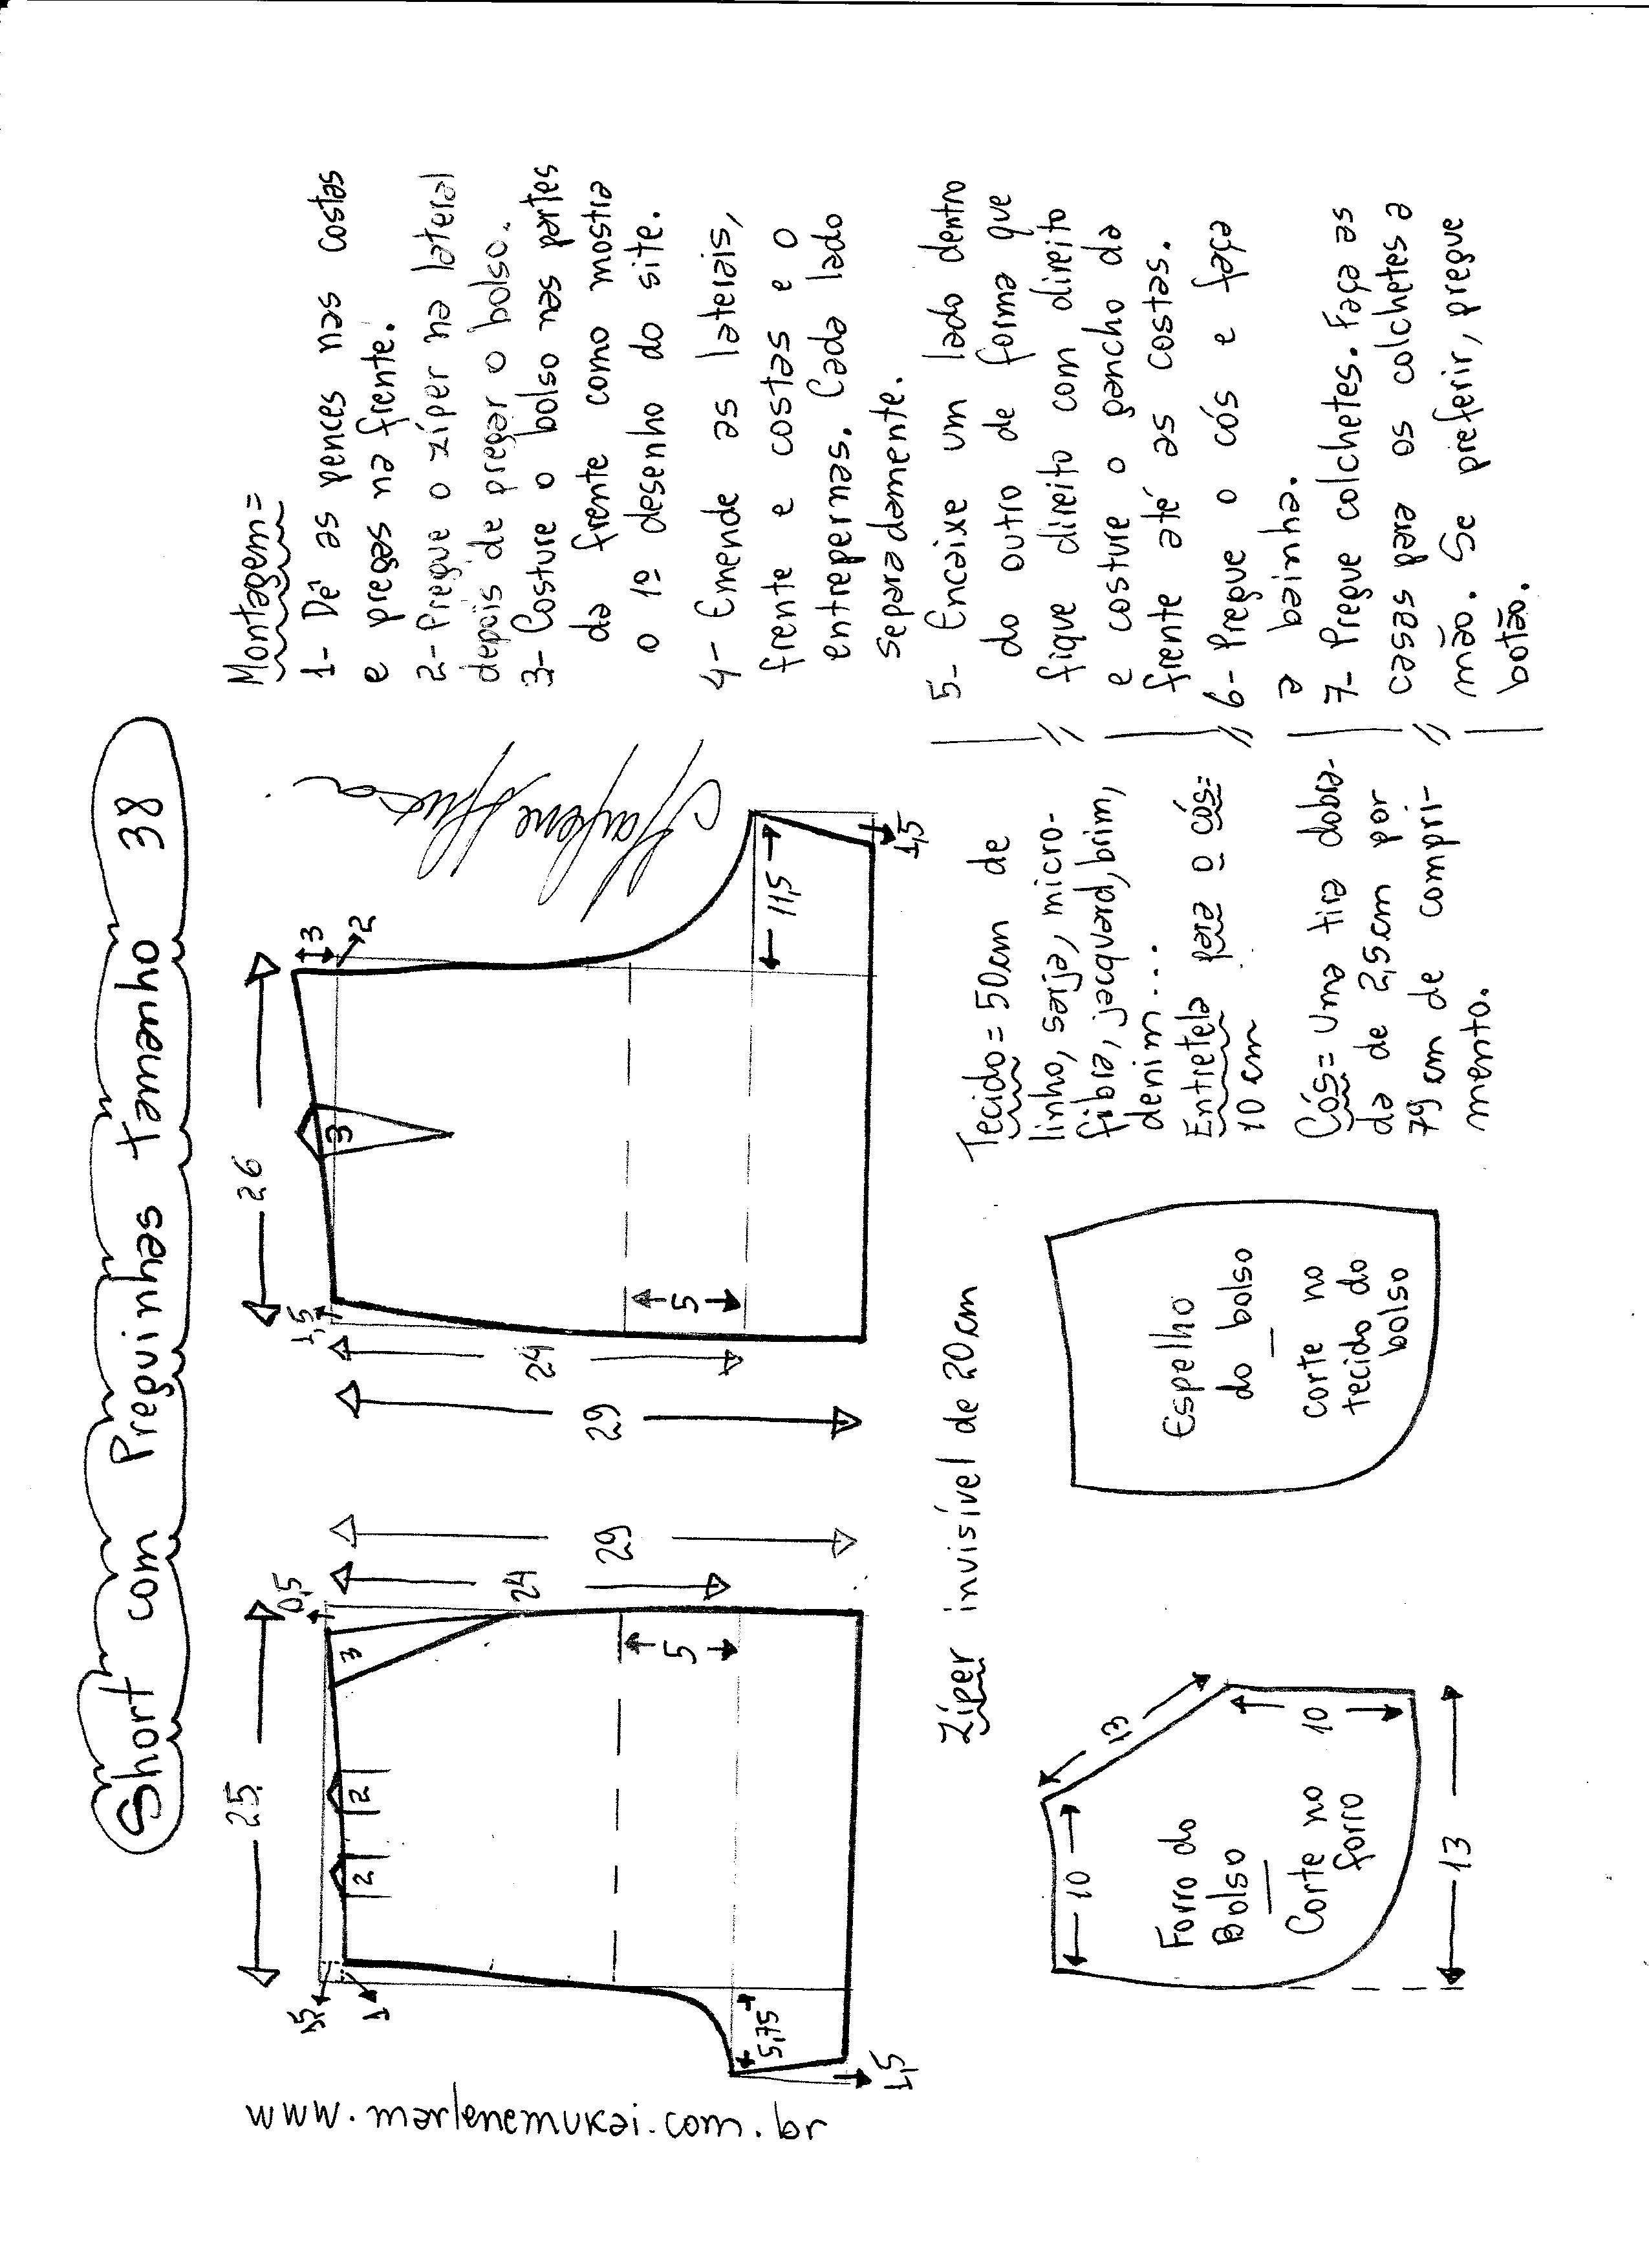 Short com Preguinhas tamanho 38
www.marlenemukai.com.br
25
1,5
1
2
2
3
0,5
5
24
29
5,75
1,5
26
1,5
3
3
2
5
24
29
11,5
1,5
Montagem=
1- Dê as pences nas costas
e pregas na frente.
2- Pregue o zíper na lateral
depois de pregar o bolso.
3- Costure o bolso nas partes
da frente como mostra
o 1º desenho do site.
4- Emende as laterais,
frente e costas e o
entrepernas. Cada lado
separadamente.
5- Encaixe um lado dentro
do outro de forma que
fique direito com direito
e costure o gancho da
frente até as costas.
6- Pregue o cós e faça
a bainha.
7- Pregue colchetes. Faça as
casas para os colchetes a
mão. Se preferir, pregue
botão.
Zíper invisível de 20cm
Forro do
Bolso
Corte no
forro
10
13
10
13
Espelho
do bolso
corte no
tecido do
bolso
Tecido= 50cm de
linho, sarja, micro-
fibra, jacquard, brim,
denim...
Entretela para o cós=
10 cm
Cós= Uma tira dobra-
da de 2,5cm por
79 cm de compri-
mento.